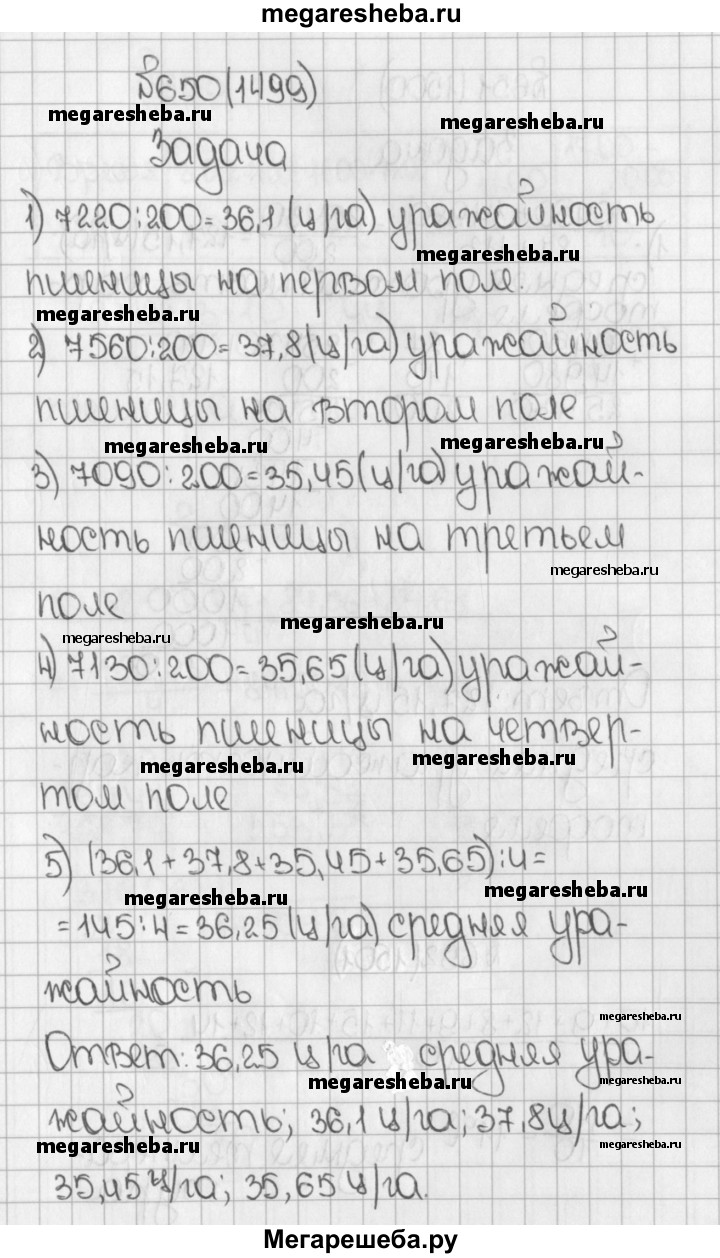 megaresheba.ru
№650(1499)
megaresheba.ru
megaresheba.ru
Задача
1) 7220:200=36,1 (ц/га) урожайность
megaresheba.ru
пшеницы на первом поле.
megaresheba.ru
2) 7560:200=37,8(ц/га) урожайность
пшеницы на втором поле
megaresheba.ru
megaresheba.ru
3) 7090:200=35,45(ц/га) урожай-
ность пшеницы на третьем
megaresheba.ru
поле
megaresheba.ru
megaresheba.ru
4) 7130:200=35,65(ц/га) урожай-
ность пшеницы на четвер-
megaresheba.ru
megaresheba.ru
том поле
5) (36,1+37,8+35,45+35,65):4=
megaresheba.ru
megaresheba.ru
=145:4=36,25 (ц/га) средняя уро-
жайность
megaresheba.ru
Ответ: 36,25 ц/га средняя уро-
megaresheba.ru
megaresheba.ru
жайность; 36,1 ц/га; 37,8ц/га;
megaresheba.ru
megaresheba.ru
35,45 ц/га; 35,65 ц/га.
Мегарешеба.ру